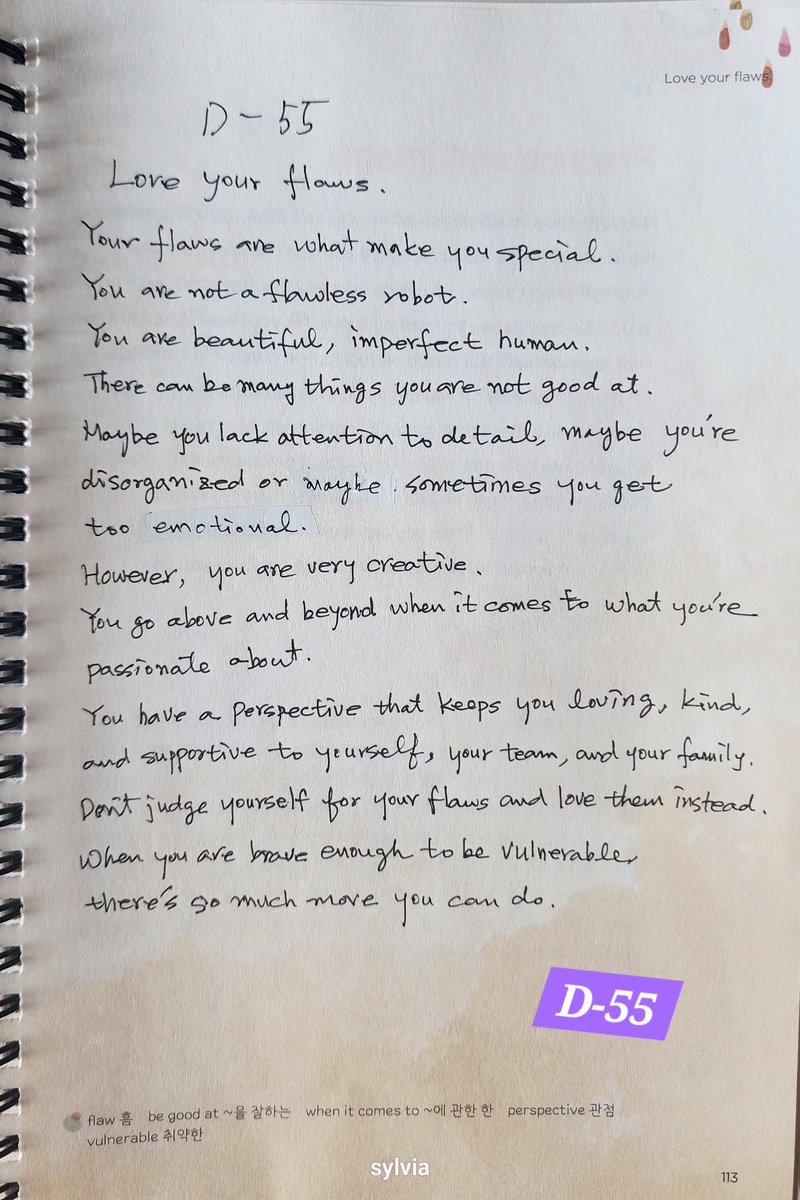 Love your flaws.
D-55
Love your flaws.
Your flaws are what make you special.
You are not a flawless robot.
You are beautiful, imperfect human.
There can be many things you are not good at.
Maybe you lack attention to detail, maybe you're
disorganized or maybe sometimes you get
too emotional.
However, you are very creative.
You go above and beyond when it comes to what you're
passionate about.
You have a perspective that keeps you loving, kind,
and supportive to yourself, your team, and your family.
Don't judge yourself for your flaws and love them instead.
When you are brave enough to be vulnerable,
there's so much more you can do.
D-55
flaw 흠 be good at ~을 잘하는 when it comes to ~에 관한 한 perspective 관점
vulnerable 취약한
sylvia
113